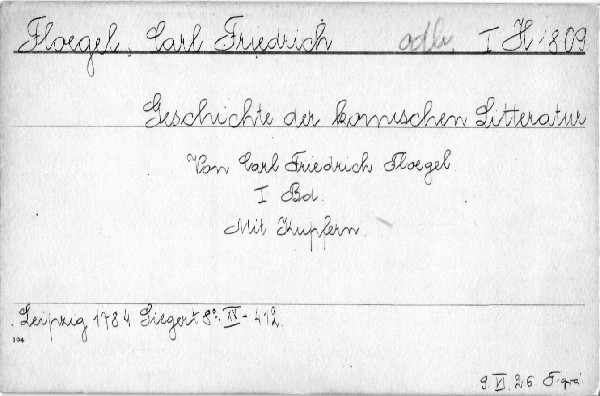 Floegel, Carl Friedrich odb. I H 809
Geschichte der komischen Litteratur
Von Carl Friedrich Floegel.
I Bd.
Mit Kupfern.
Leipzig 1784 Siegert 8°. XX - 412.
194
9 VI. 26.